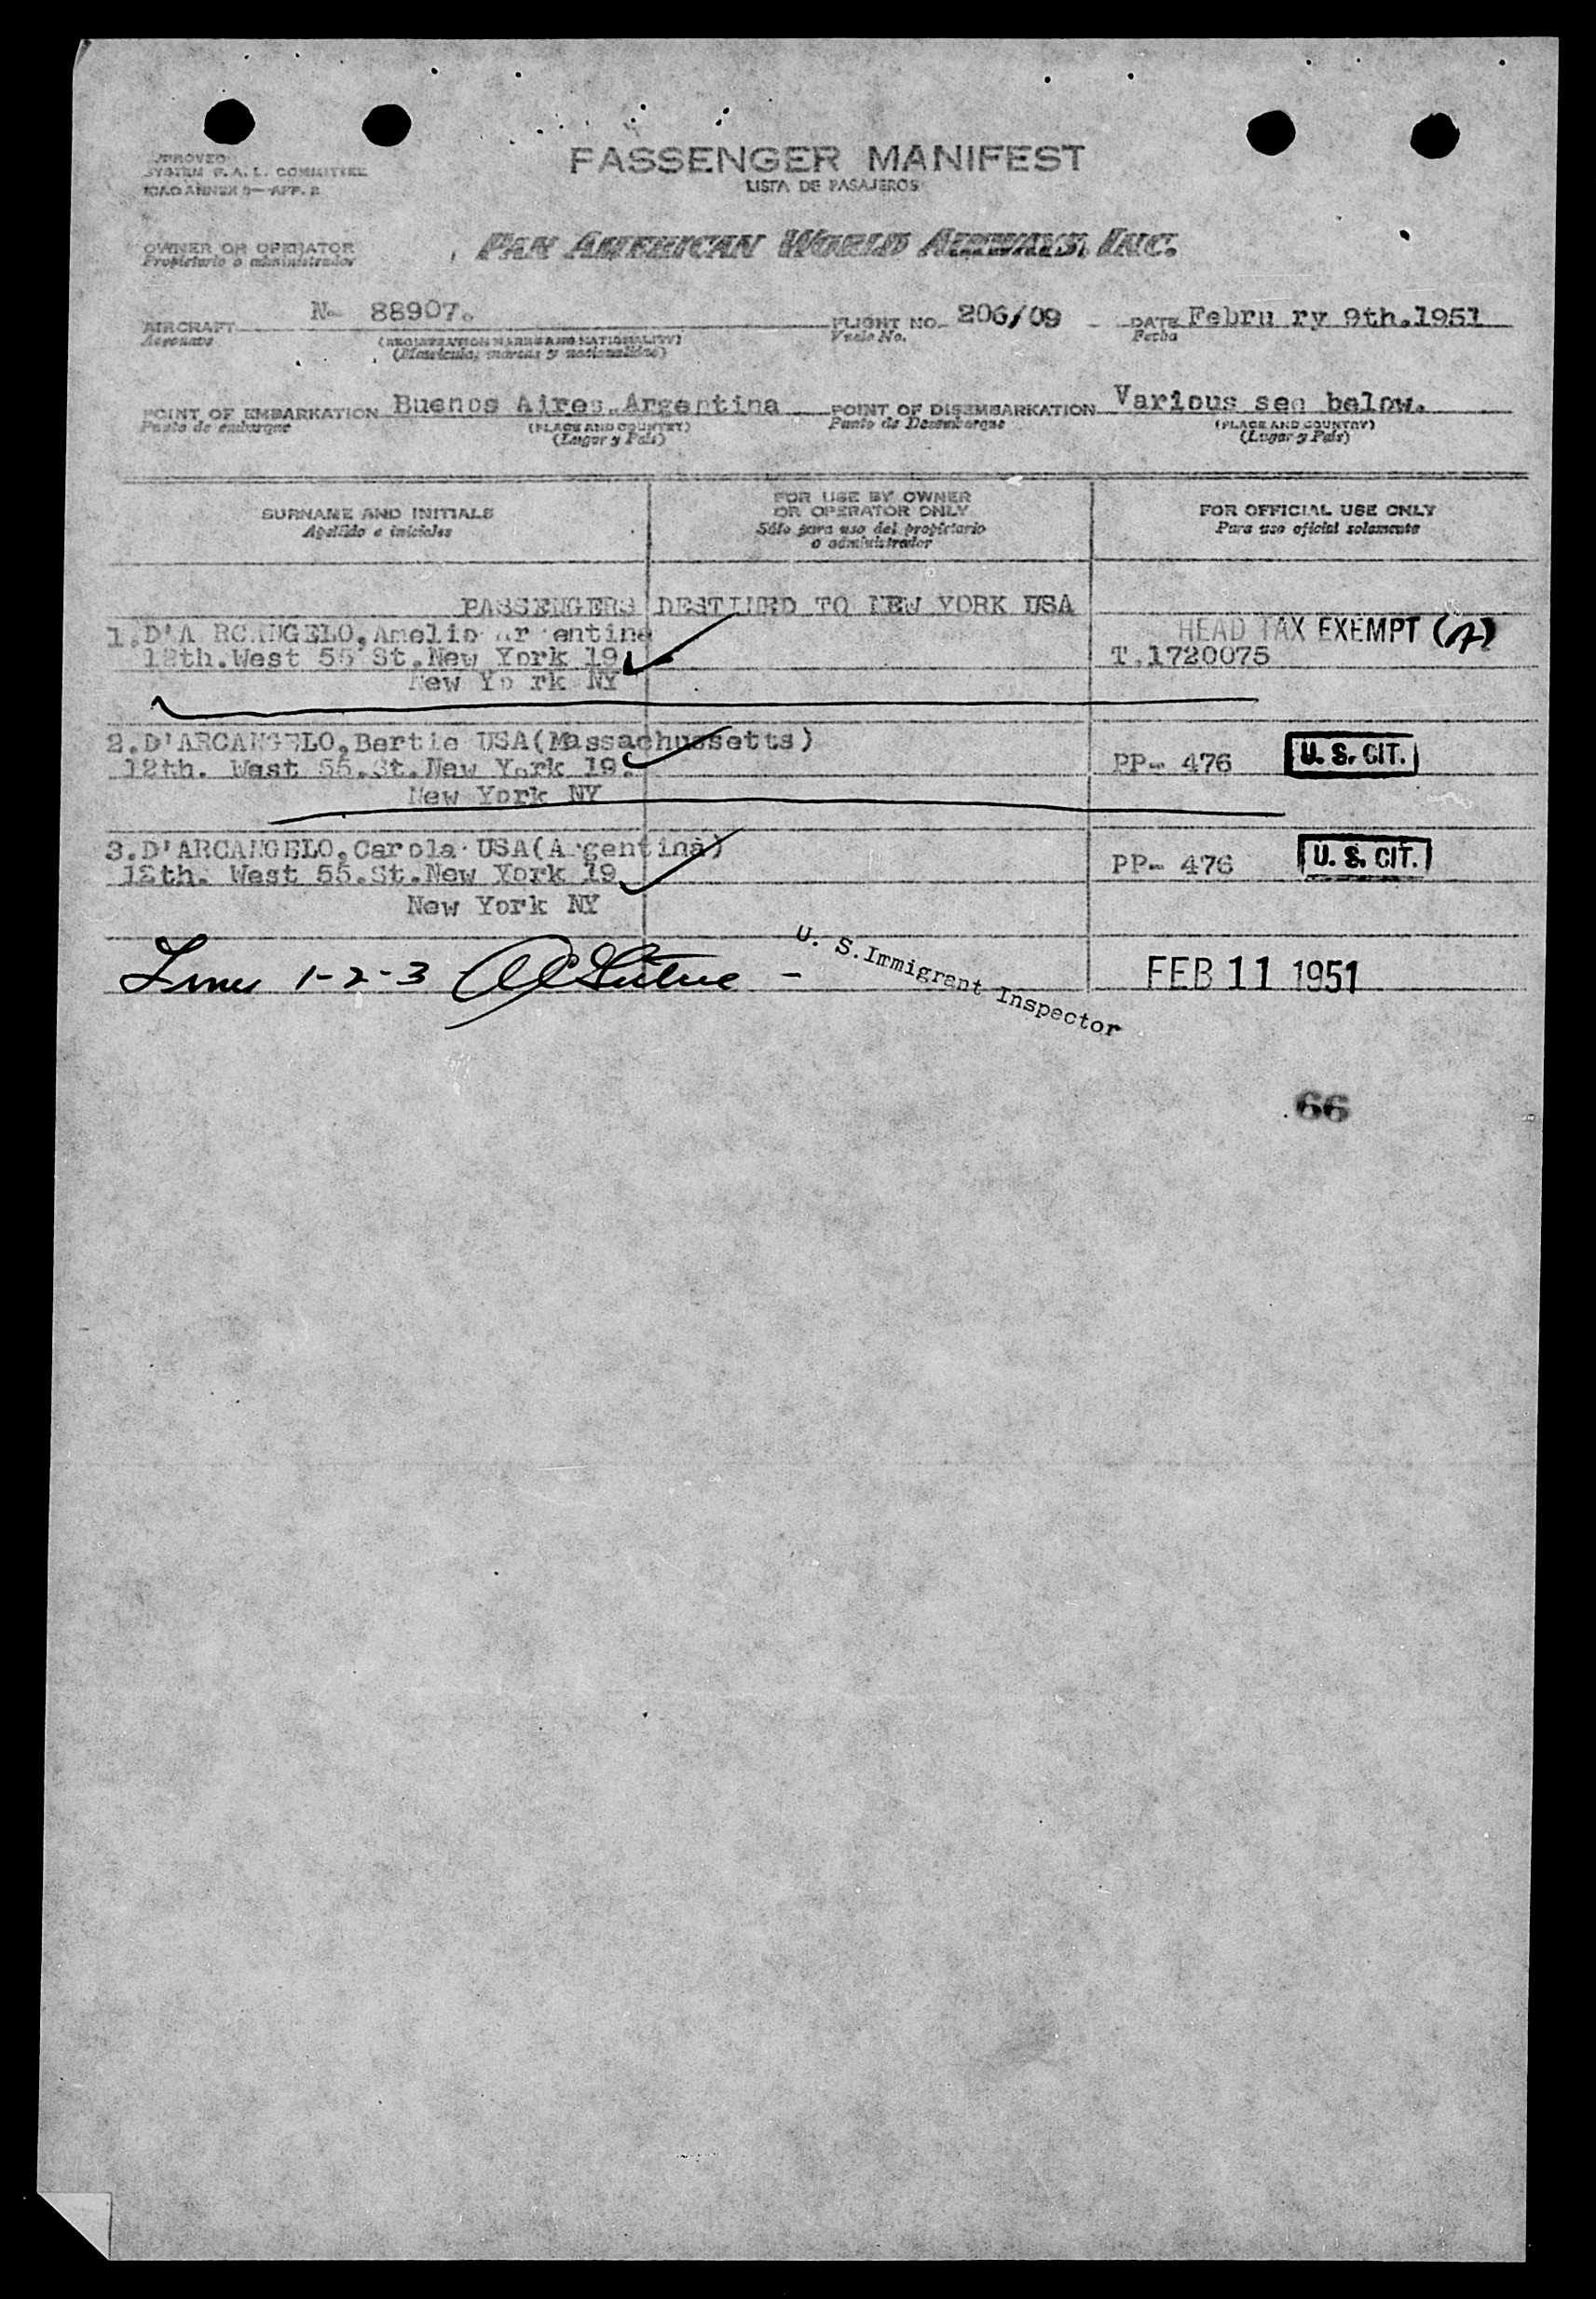 APPROVED
SYSTEM F. A. L. COMMITTEE
ICAO ANNEX 9—APP. 2
PASSENGER MANIFEST
LISTA DE PASAJEROS
OWNER OR OPERATOR
Propietario o administrador
PAN AMERICAN WORLD AIRWAYS, INC.
AIRCRAFT N- 88907.
Aeronave
(REGISTRATION MARKS AND NATIONALITY)
(Matrícula, marcas y nacionalidad)
FLIGHT NO. 206/09
Vuelo No.
DATE Febru ry 9th.1951
Fecha
POINT OF EMBARKATION Buenos Aires.Argentina
Punto de embarque
(PLACE AND COUNTRY)
(Lugar y País)
POINT OF DISEMBARKATION Various see below.
Punto de Desembarque
(PLACE AND COUNTRY)
(Lugar y País)
SURNAME AND INITIALS
Apellido e iniciales
FOR USE BY OWNER
OR OPERATOR ONLY
Sólo para uso del propietario
o administrador
FOR OFFICIAL USE ONLY
Para uso oficial solamente
PASSENGERS DESTINED TO NEW YORK USA
1.D'A RCANGELO,Amelio Ar entina
HEAD TAX EXEMPT (A)
12th.West 55 St.New York 19.
T.1720075
New Yo rk NY
2.D'ARCANGELO,Bertie USA(Massachussetts)
12th. West 55.St.New York 19.
PP- 476
U. S. CIT.
New York NY
3.D'ARCANGELO,Carola USA(Argentina)
12th. West 55.St.New York 19
PP- 476
U. S. CIT.
New York NY
Lines 1-2-3
U. S.Immigrant Inspector
FEB 11 1951
66